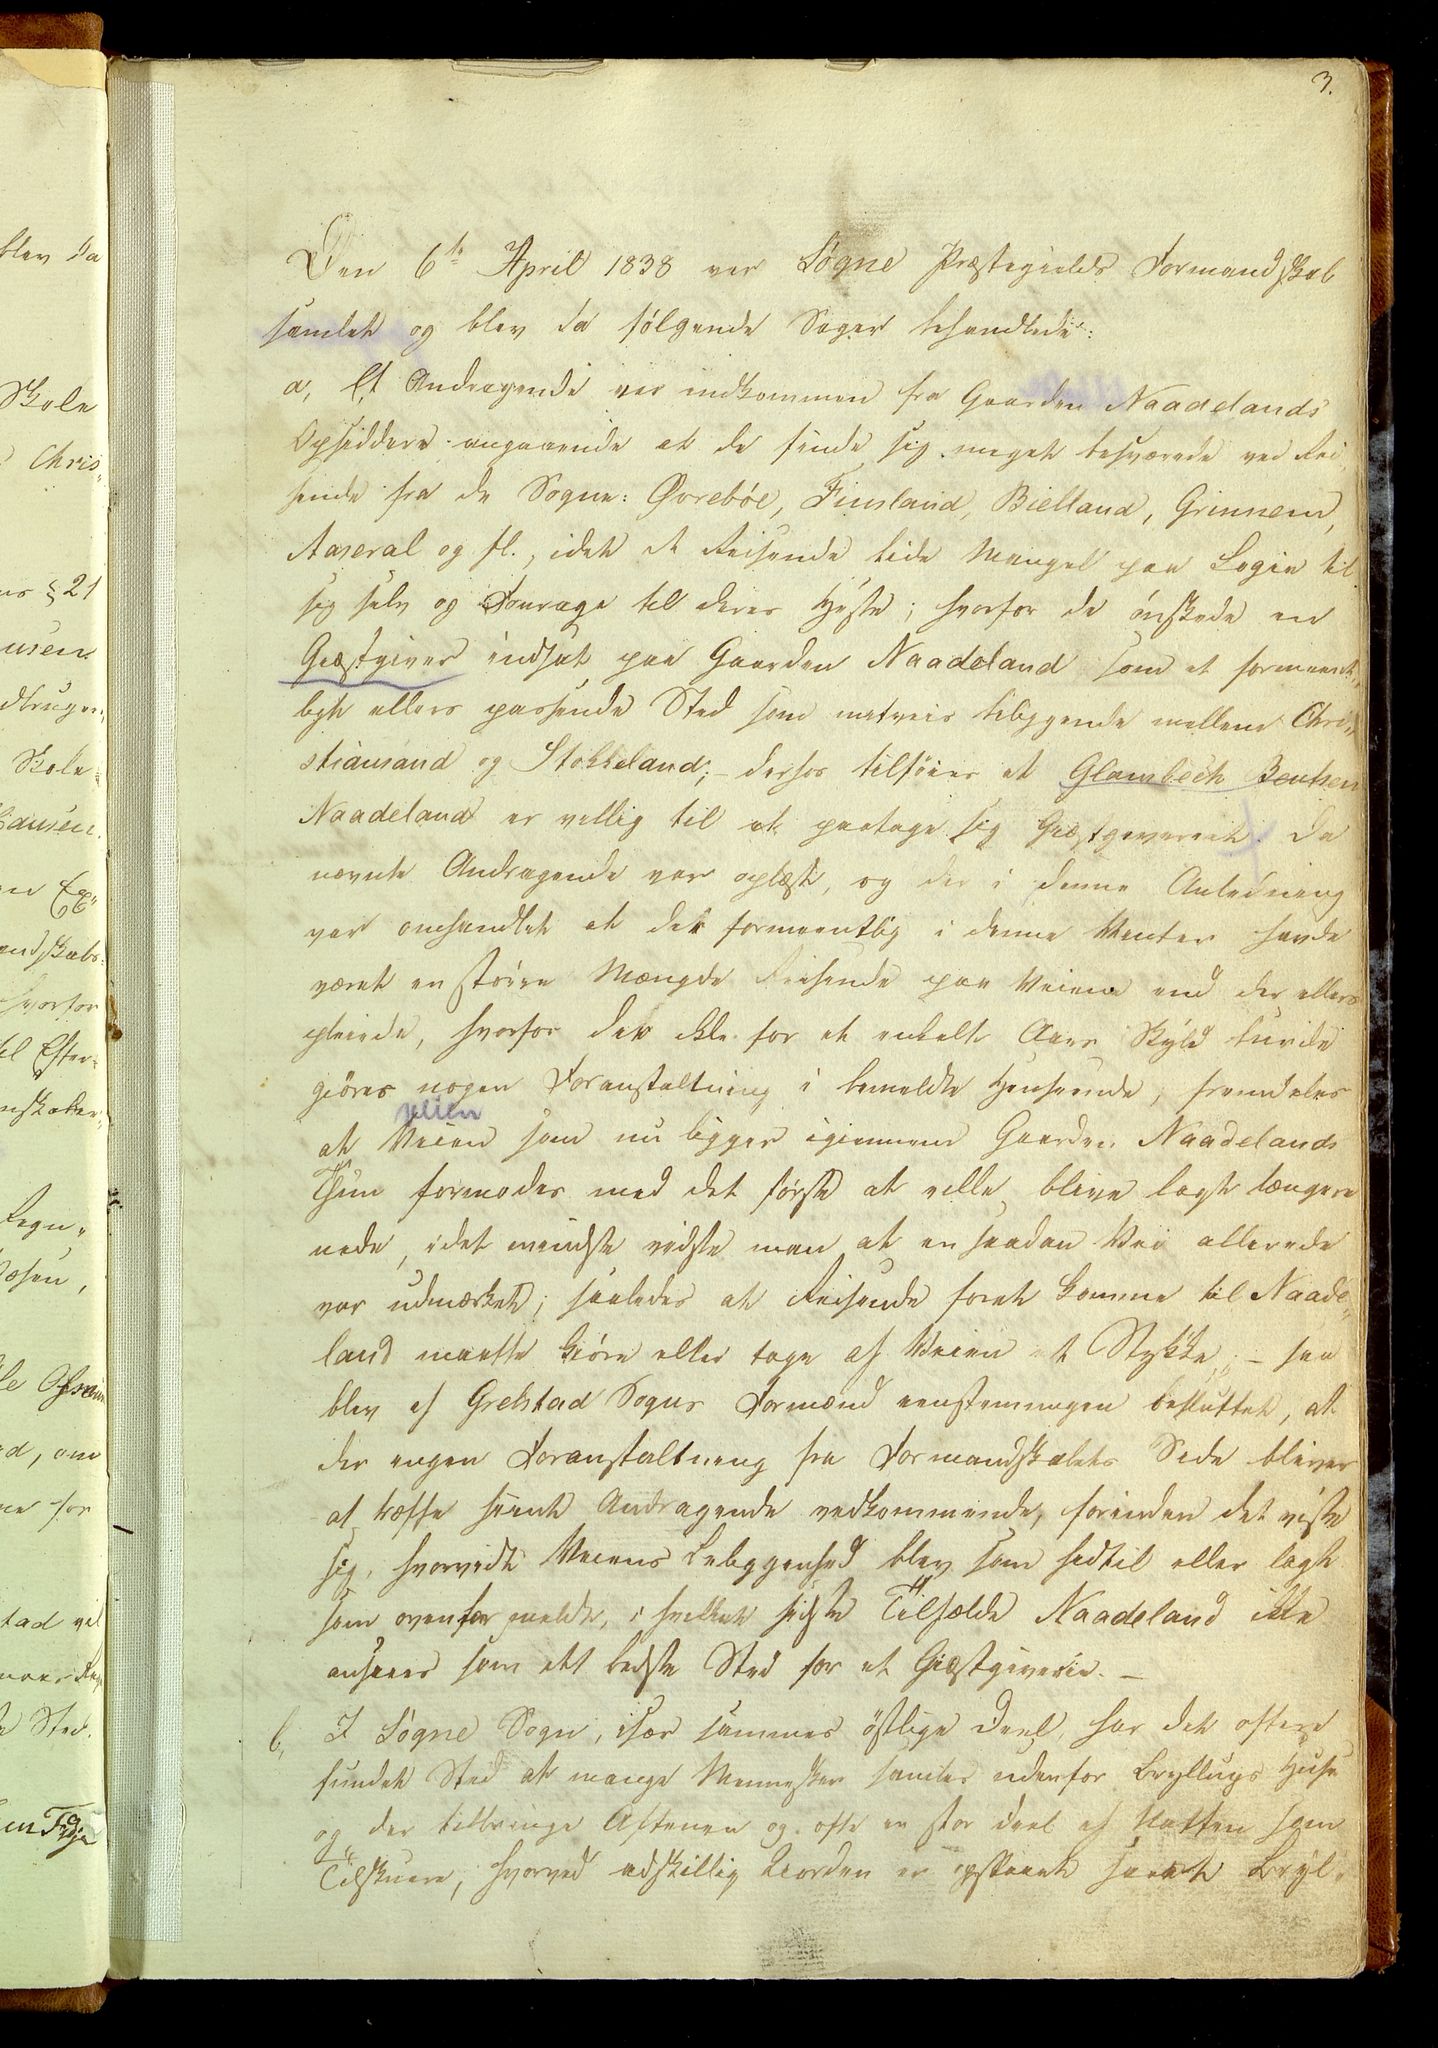 3.
Den 6te April 1838 var Søgne Præstegields Formandskab
samlet og blev da følgende Sager behandlede:
a, Et Andragende var indkommen fra Gaarden Naadelands
Opsiddere angaaende at de finde sig meget besværede ved Rei-
sende fra de Sogne: Øvrebøe, Finsland, Bielland, Grinnem,
Aaseral og fl., idet de Reisende lide Mangel paa Logie til
sig selv og Fourage til deres Heste; hvorfor de ønskede en
Giæstgiver indsat paa Gaarden Naadeland som et formeent-
ligt ellers passende Sted som midtveis beliggende mellem Chri-
stiansand og Stokkeland; - derhos tilføies at Glambech Bentsen
Naadeland er villig til at paatage sig Giæstgiveriet. Da
nævnte Andragende var oplæst, og der i denne Anledning
var omhandlet at der formeentlig i denne Vinter havde
været en større Mængde Reisende paa Veiene end der ellers
pleiede, hvorfor der ikke for et enkelt Aars Skyld burde
giøres nogen Foranstaltning i bemeldte Henseende; fremdeles
veien
at Veien som nu ligger igiennem Gaarden Naadelands
Thun formodes med det første at ville blive lagt længere
nede, idet mindste vidste man at en saadan Vei allerede
var udmærket; saaledes at Reisende foret komme til Naade-
land maatte kiøre eller tage af Veien et Stykke; - saa
blev af Grelstad Sogns Formænd eenstemmigen besluttet, at
der ingen Foranstaltning fra Formandskabets Side bliver
at træffe hiint Andragende vedkommende, forinden det viste
sig, hvorvidt Veiens Beliggenhed blev som hidtil eller lagt
som ovenfor meldt, i hvilket sidste Tilfælde Naadeland ikke
ansaaes som det bedste Sted for et Giæstgiverie. -
b, I Søgne Sogn, især sammes østlige Deel, har det oftere
fundet Sted at mange Mennesker samles udenfor Bryllups Huse
og der tilbringe Aftenen og ofte en stor Deel af Natten som
Tilskuere, hvorved adskillig Uorden er opstaaet saavel Bryl-